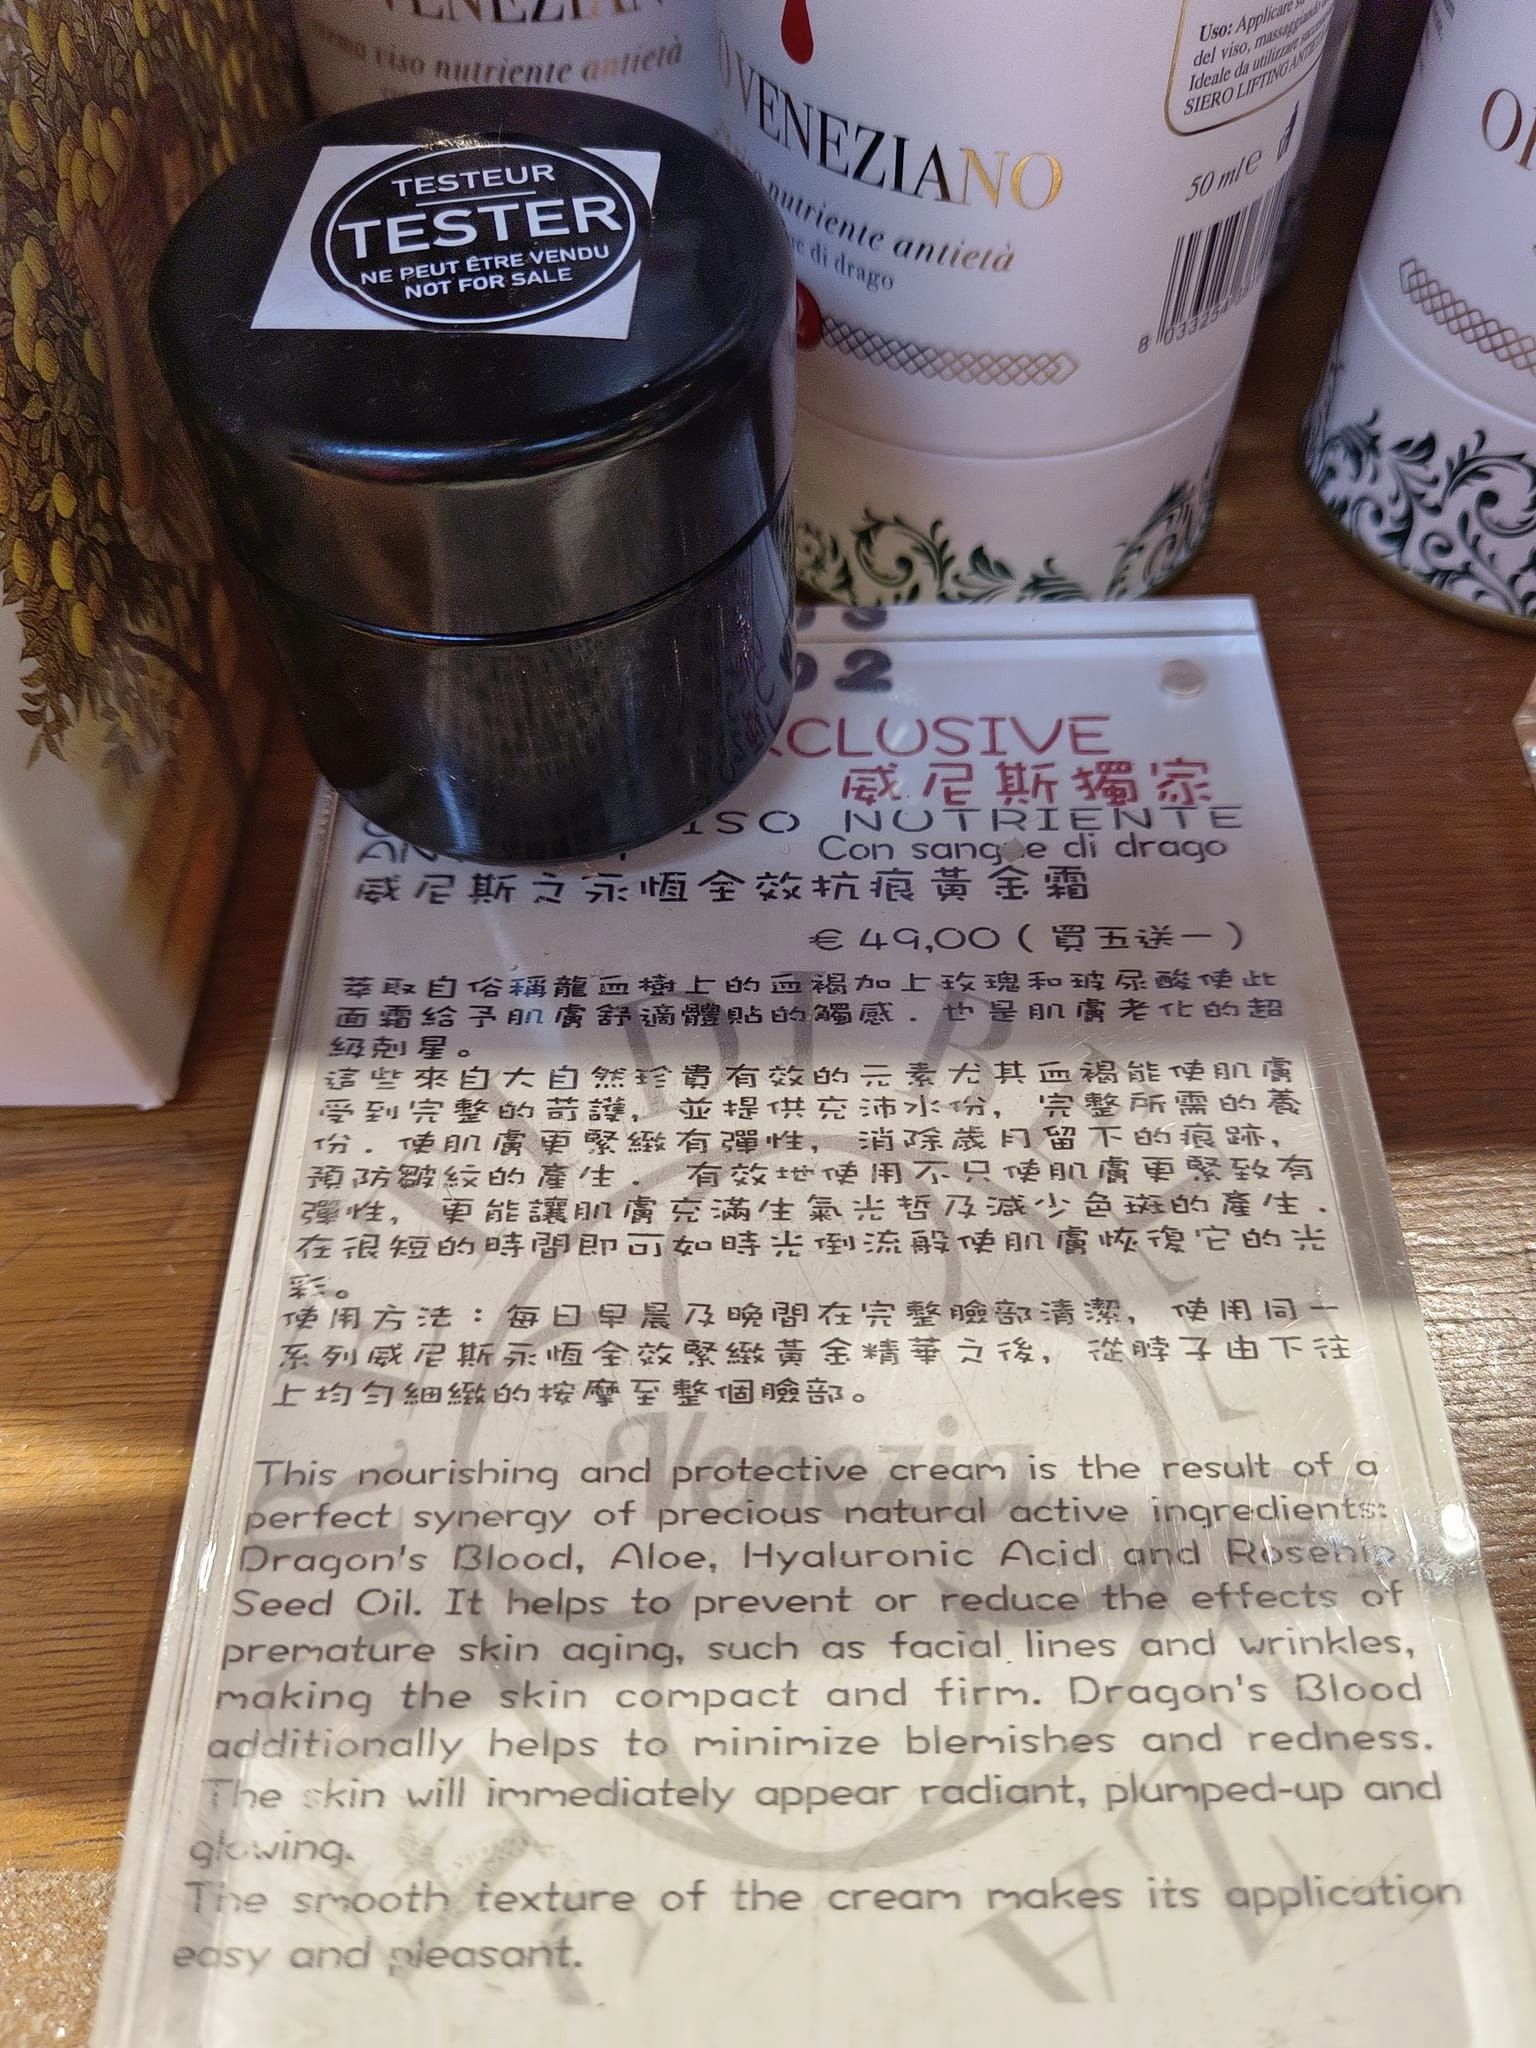 VENEZIANO
viso nutriente antietà
VENEZIANO
nutriente antietà
di drago
Uso: Applicare
del viso, massaggiando
Ideale da utilizzare
SIERO LIFTING
50 ml e
8 033254
TESTEUR
TESTER
NE PEUT ÊTRE VENDU
NOT FOR SALE
02
XCLUSIVE
威尼斯獨家
ISO NUTRIENTE
Con sangue di drago
威尼斯之永恆全效抗痕黃金霜
€ 49,00 ( 買五送一 )
萃取自俗稱龍血樹上的血褐加上玫瑰和玻尿酸使此
面霜給予肌膚舒適體貼的觸感．也是肌膚老化的超
級剋星。
這些來自大自然珍貴有效的元素尤其血褐能使肌膚
受到完整的苛護，並提供充沛水份，完整所需的養
份．使肌膚更緊緻有彈性，消除歲月留下的痕跡，
預防皺紋的產生． 有效地使用不只使肌膚更緊致有
彈性，更能讓肌膚充滿生氣光哲及減少色斑的產生．
在很短的時間即可如時光倒流般使肌膚恢復它的光
彩。
使用方法：每日早晨及晚間在完整臉部清潔，使用同一
系列威尼斯永恆全效緊緻黃金精華之後，從脖子由下往
上均勻細緻的按摩至整個臉部。
Venezia
This nourishing and protective cream is the result of a
perfect synergy of precious natural active ingredients:
Dragon's Blood, Aloe, Hyaluronic Acid and Rosehip
Seed Oil. It helps to prevent or reduce the effects of
premature skin aging, such as facial lines and wrinkles,
making the skin compact and firm. Dragon's Blood
additionally helps to minimize blemishes and redness.
The skin will immediately appear radiant, plumped-up and
glowing.
The smooth texture of the cream makes its application
easy and pleasant.